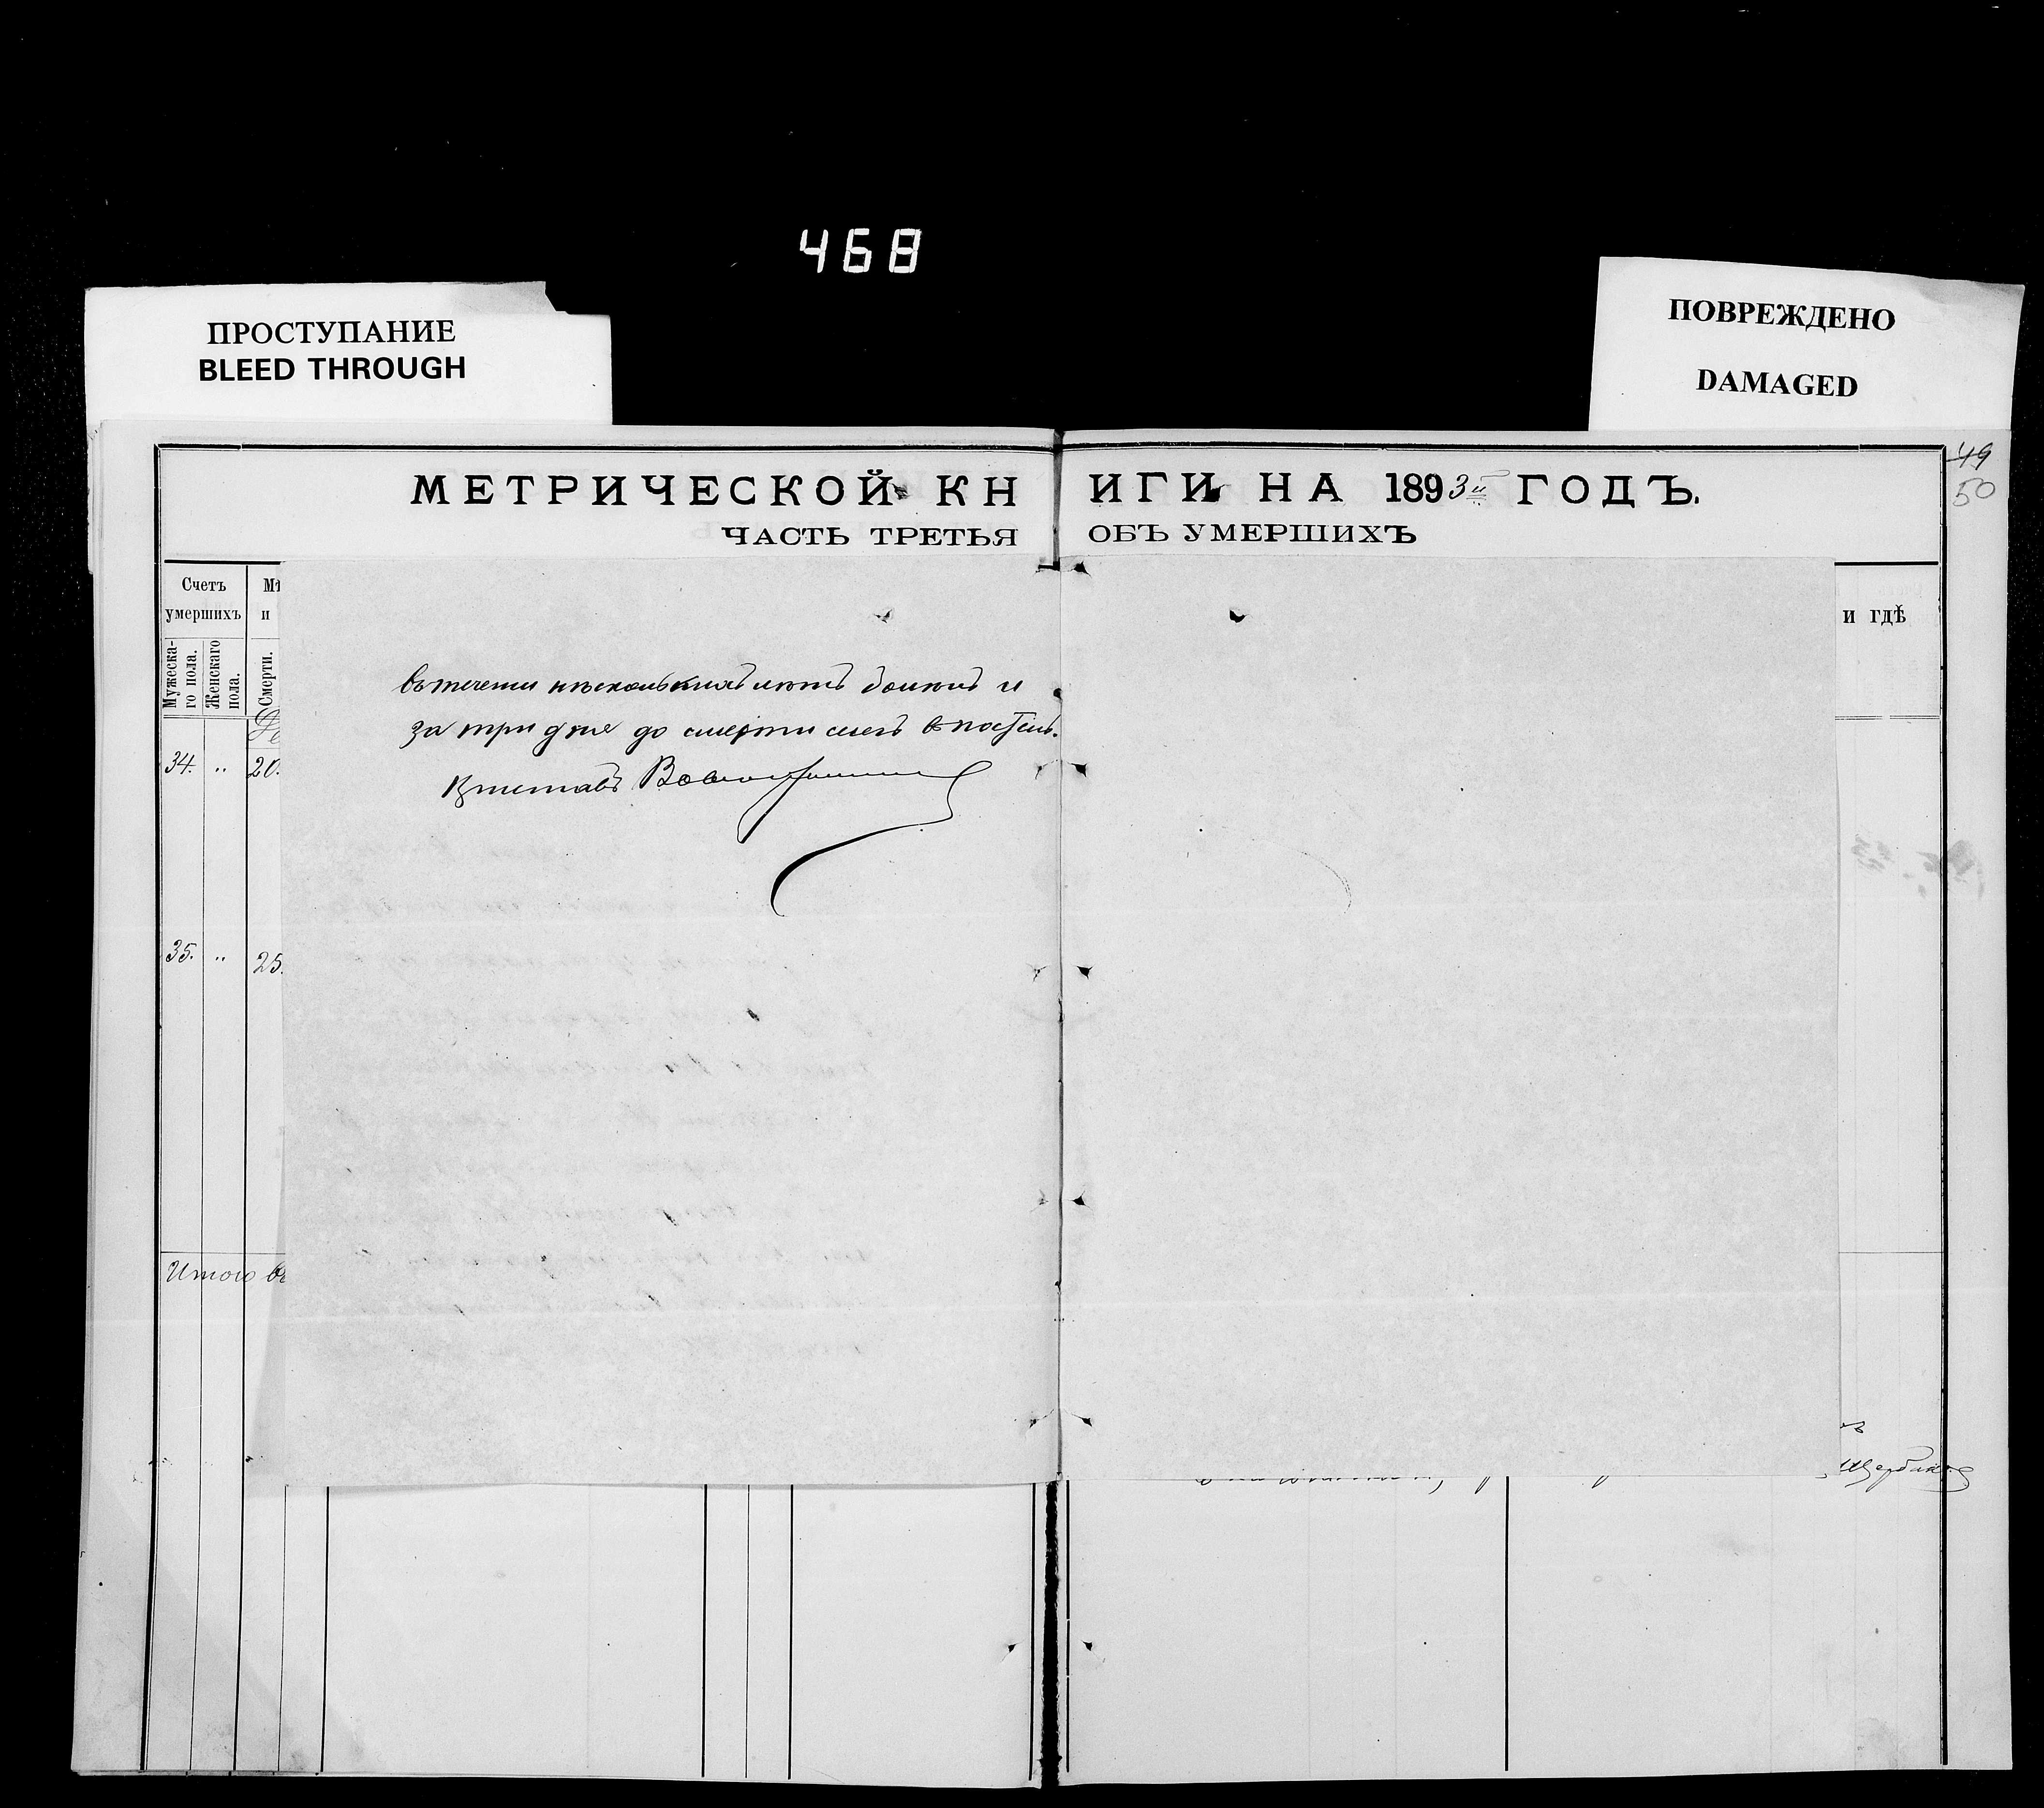 468
ПРОСТУПАНИЕ
BLEED THROUGH
ПОВРЕЖДЕНО
DAMAGED
49
50
МЕТРИЧЕСКОЙ КНИГИ НА 1893й ГОДЪ.
ЧАСТЬ ТРЕТЬЯ ОБЪ УМЕРШИХЪ
Счетъ
умершихъ
Мѣ
и
И ГДѢ
Мужеска-
го пола.
Женскаго
пола.
Смерти.
въ течении нѣсколькихъ лѣтъ болѣлъ и
за три дня до смерти слегъ в постель.
Приставъ
34. „ 20.
35. „ 25.
Итого въ
Щербаков